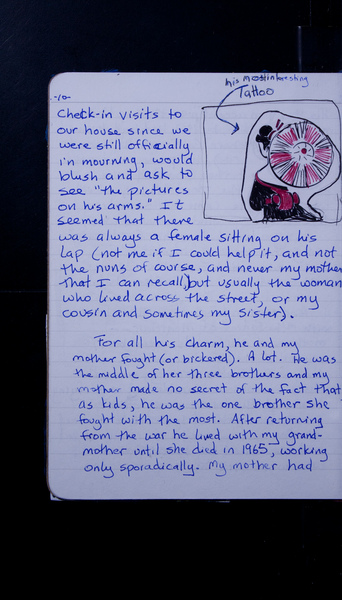 -10-
his most interesting
Tattoo
Check-in visits to
our house since we
were still officially
in mourning, would
blush and ask to
see "the pictures
on his arms." It
seemed that there
was always a female sitting on his
lap (not me if I could help it, and not
the nuns of course, and never my mother
that I can recall) but usually the woman
who lived across the street, or my
cousin and sometimes my sister).
For all his charm, he and my
mother fought (or bickered). A lot. He was
the middle of her three brothers and my
mother made no secret of the fact that
as kids, he was the one brother she
fought with the most. After returning
from the war he lived with my grand-
mother until she died in 1965, working
only sporadically. My mother had